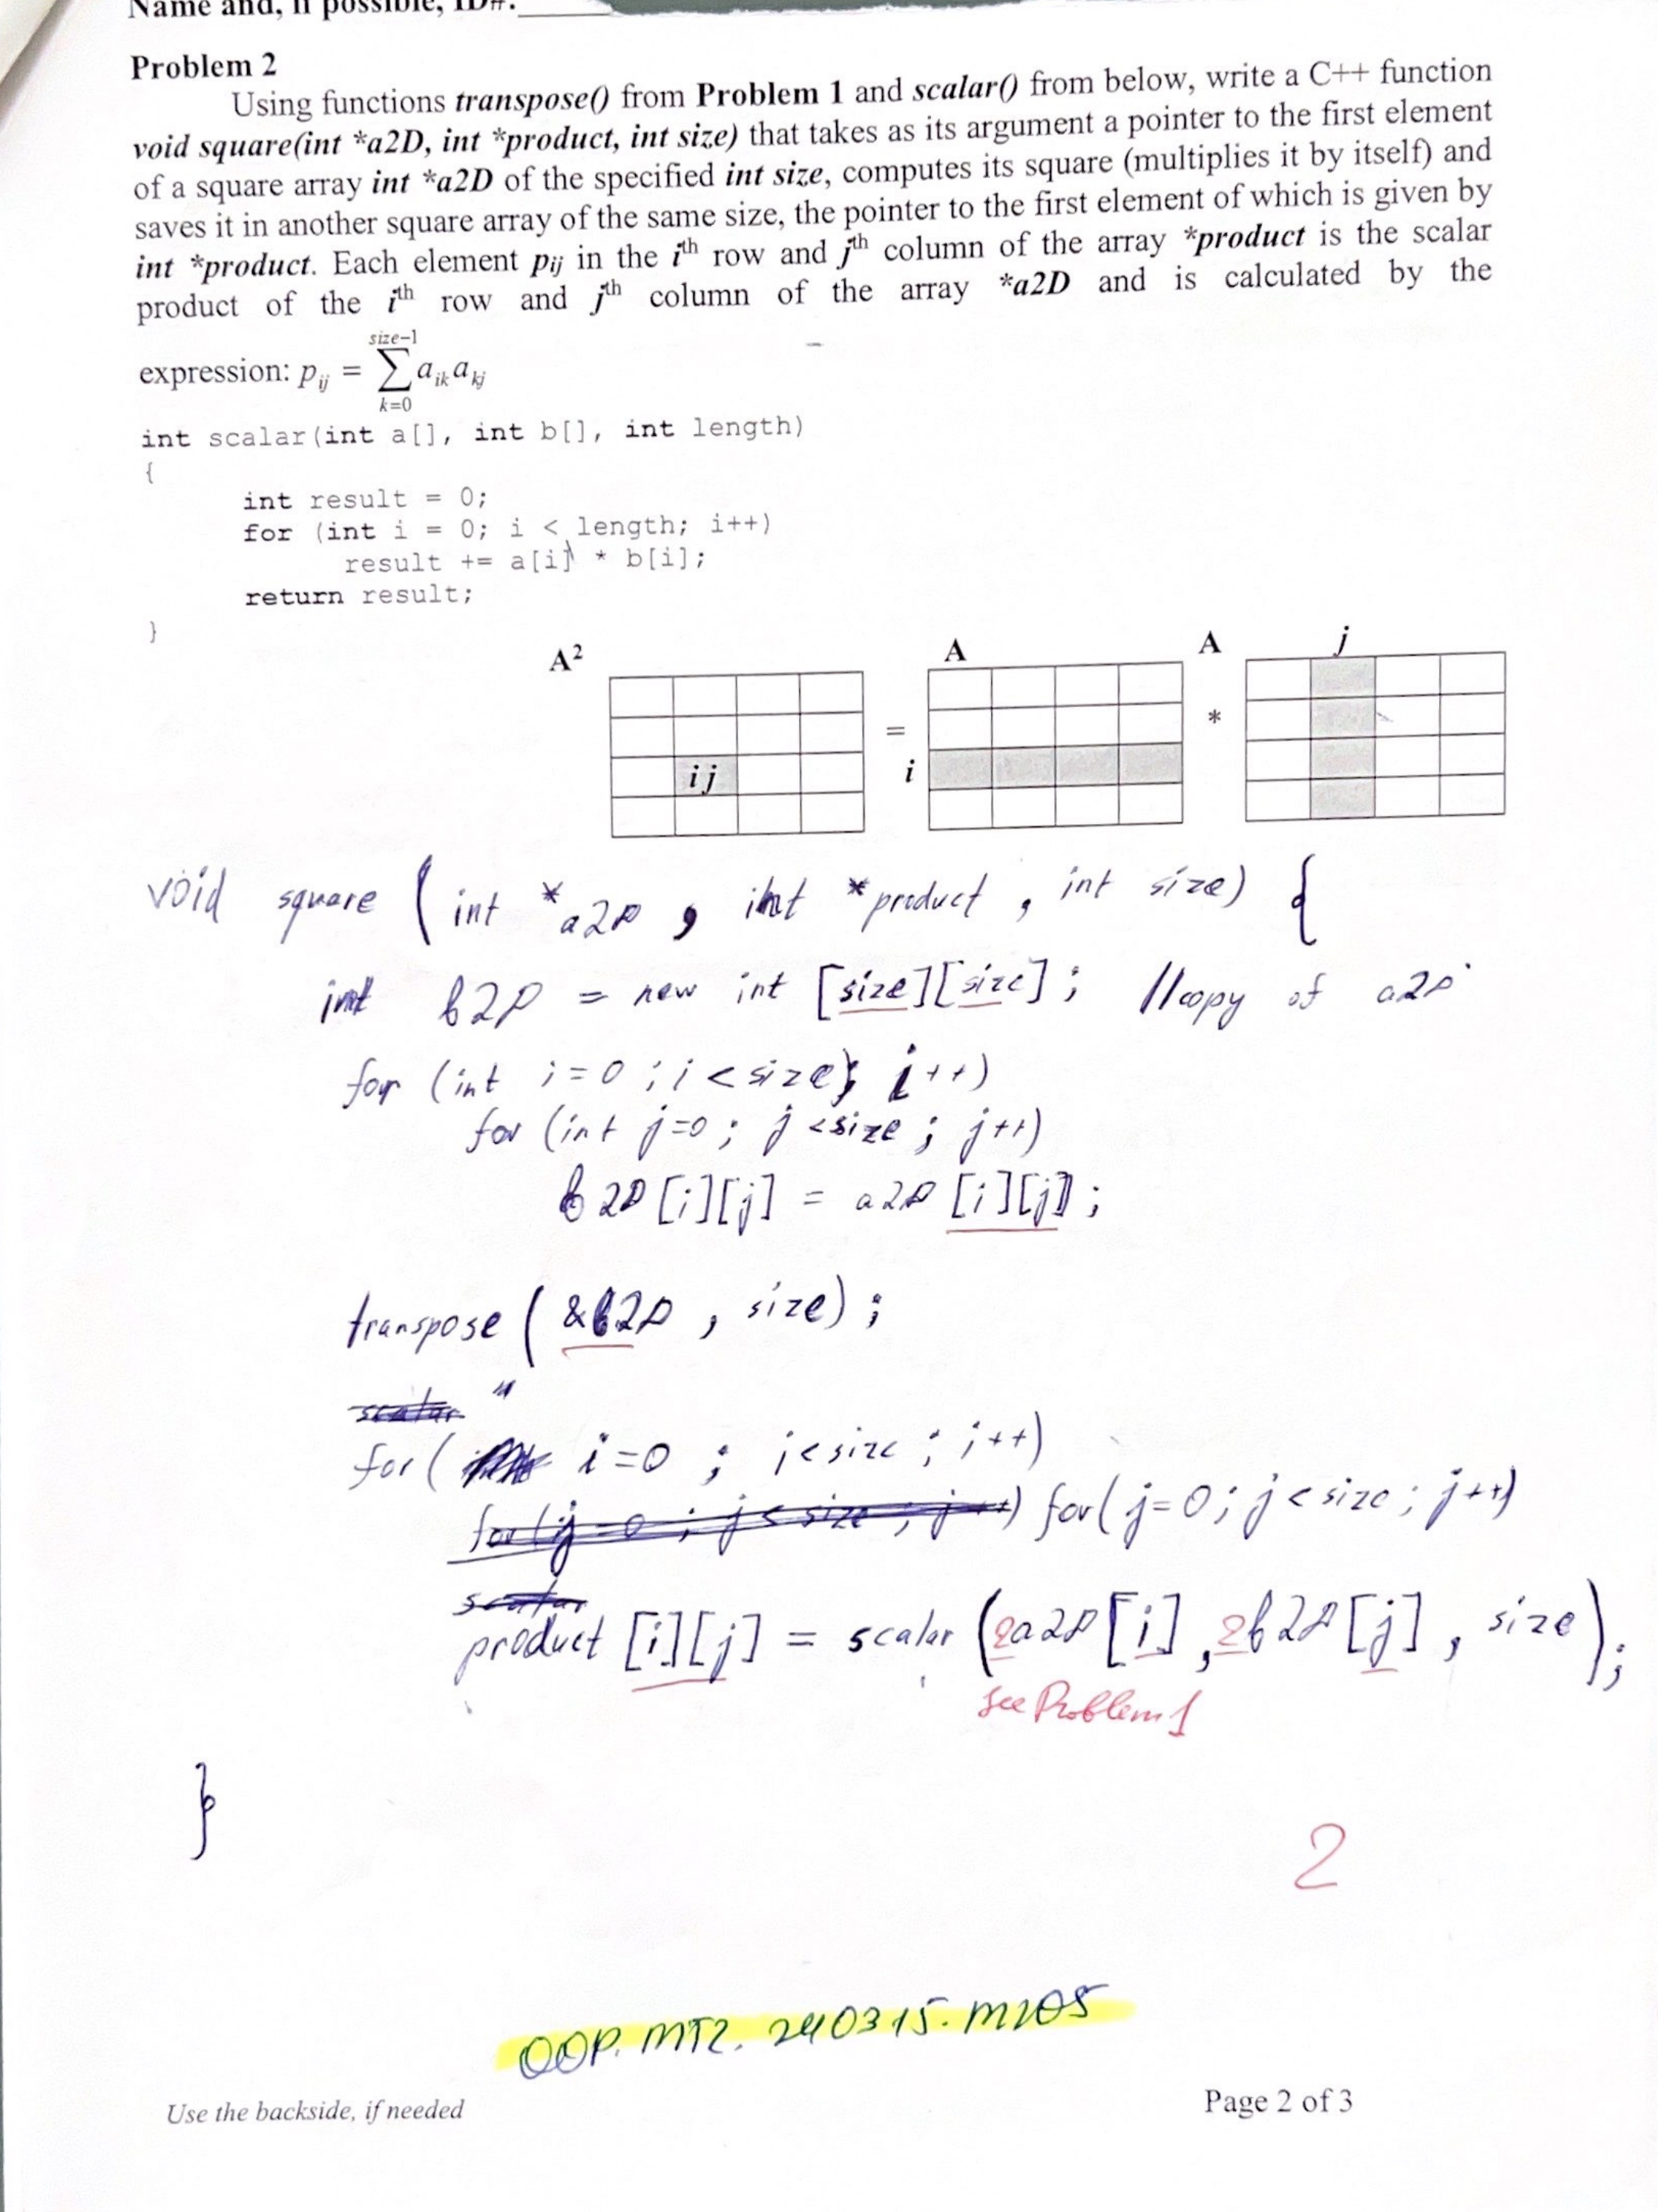 Name and, if possible, ID#:
Problem 2
Using functions transpose() from Problem 1 and scalar() from below, write a C++ function
void square(int *a2D, int *product, int size) that takes as its argument a pointer to the first element
of a square array int *a2D of the specified int size, computes its square (multiplies it by itself) and
saves it in another square array of the same size, the pointer to the first element of which is given by
int *product. Each element pij in the ith row and jth column of the array *product is the scalar
product of the ith row and jth column of the array *a2D and is calculated by the
expression: pij = size−1 ∑ k=0 aik akj
int scalar(int a[], int b[], int length)
{
int result = 0;
for (int i = 0; i < length; i++)
result += a[i] * b[i];
return result;
}
A² A A j
= *
ij i
void square ( int *a2D , int *product , int size) {
int b2D = new int [size][size] ; //copy of a2D
for (int i=0 ; i<size; i++)
for (int j=0 ; j<size ; j++)
b2D[i][j] = a2D[i][j] ;
transpose ( &b2D , size) ;
scalar
for( i=0 ; i<size ; i++)
for(j=0 ; j<size ; j++) for( j=0 ; j<size ; j++)
scalar
product [i][j] = scalar (&a2D[i] , &b2D[j] , size) ;
see Problem 1
}
2
OOP. MT2. 240315. M205
Use the backside, if needed
Page 2 of 3